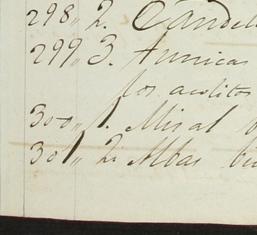 298,, 2. Candel
299,, 3. tunicas
los acolitos
300,, 1. Misal
301,, 2. Albas